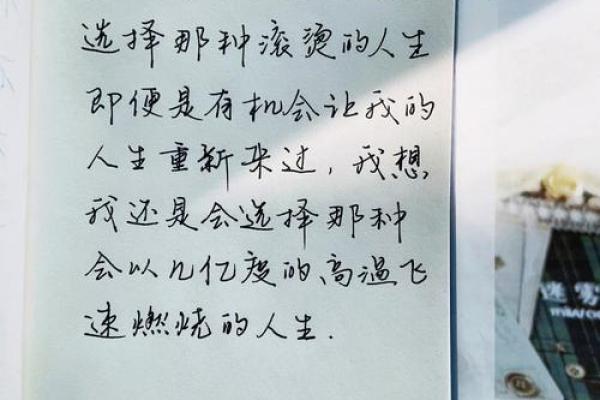 选择那种滚烫的人生
即便是有机会让我的
人生重新来过，我想，
我还是会选择那种
会以几亿度的高温飞
速燃烧的人生.